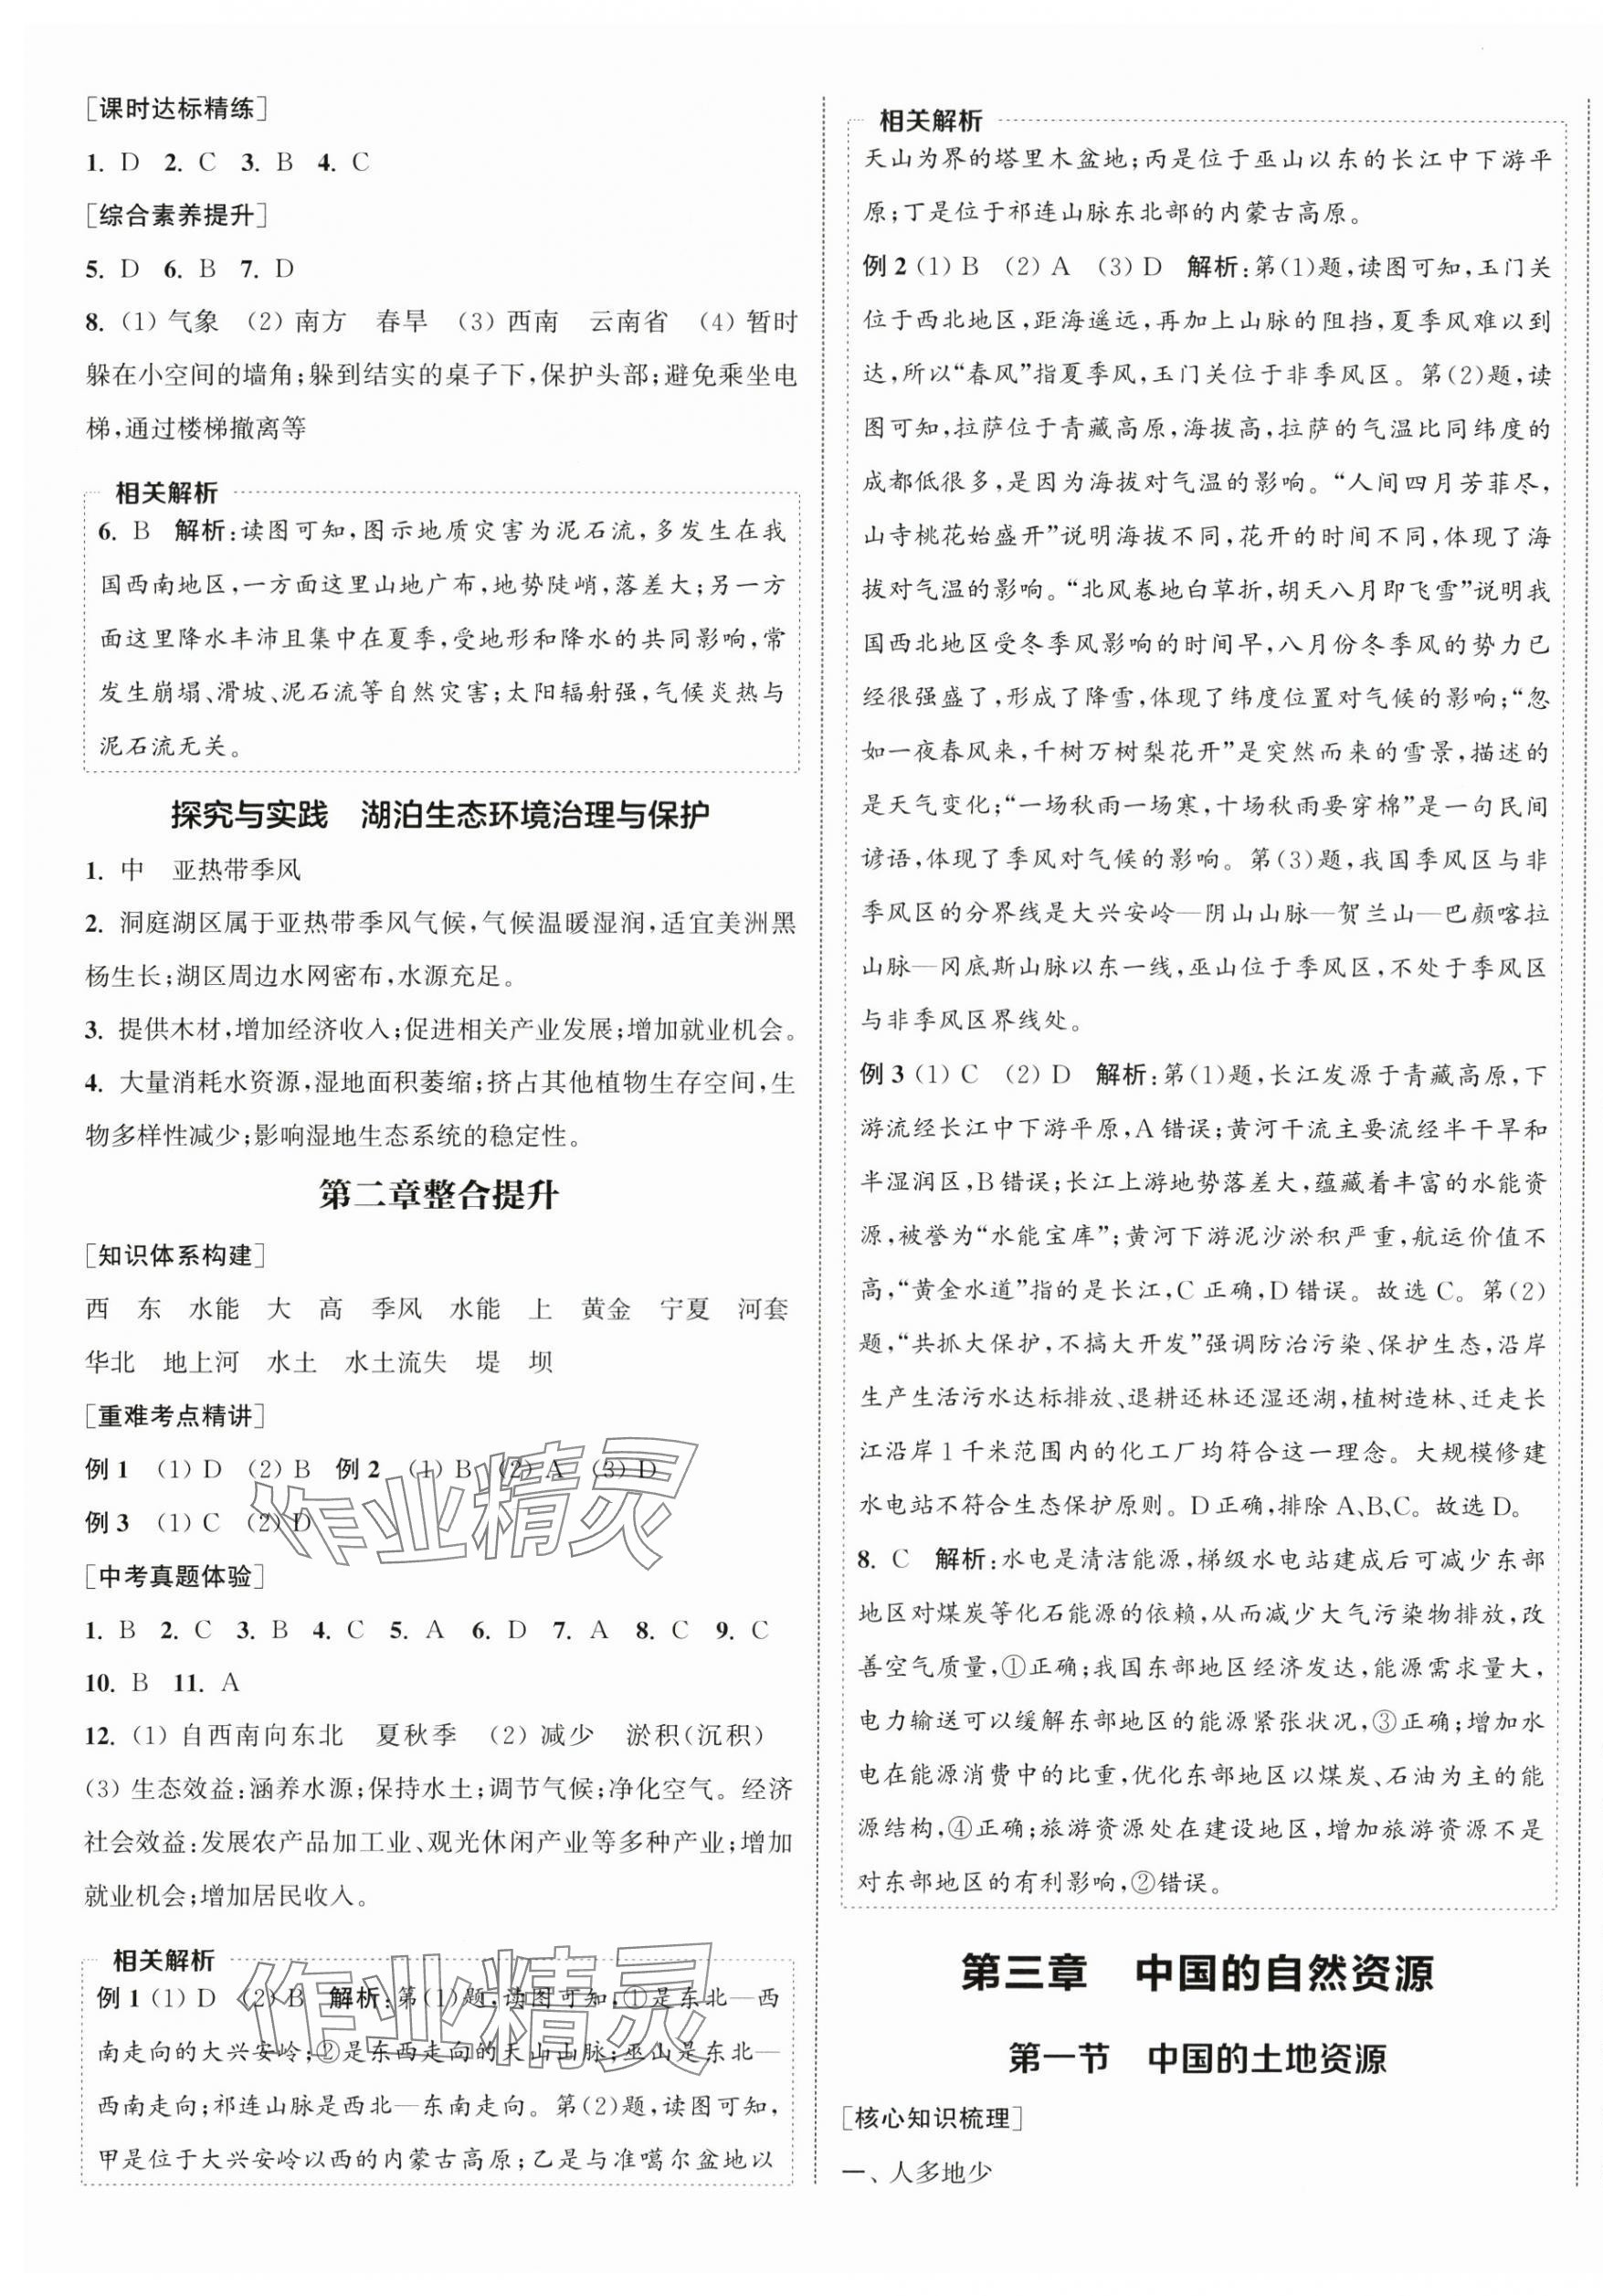 [课时达标精练]
1. D  2. C  3. B  4. C
[综合素养提升]
5. D  6. B  7. D
8. (1) 气象 (2) 南方 春旱 (3) 西南 云南省 (4) 暂时
躲在小空间的墙角;躲到结实的桌子下,保护头部;避免乘坐电
梯,通过楼梯撤离等
相关解析
6. B 解析:读图可知,图示地质灾害为泥石流,多发生在我
国西南地区,一方面这里山地广布,地势陡峭,落差大;另一方
面这里降水丰沛且集中在夏季,受地形和降水的共同影响,常
发生崩塌、滑坡、泥石流等自然灾害;太阳辐射强,气候炎热与
泥石流无关。
探究与实践 湖泊生态环境治理与保护
1. 中 亚热带季风
2. 洞庭湖区属于亚热带季风气候,气候温暖湿润,适宜美洲黑
杨生长;湖区周边水网密布,水源充足。
3. 提供木材,增加经济收入;促进相关产业发展;增加就业机会。
4. 大量消耗水资源,湿地面积萎缩;挤占其他植物生存空间,生
物多样性减少;影响湿地生态系统的稳定性。
第二章整合提升
[知识体系构建]
西 东 水能 大 高 季风 水能 上 黄金 宁夏 河套
华北 地上河 水土 水土流失 堤 坝
[重难考点精讲]
例 1 (1) D (2) B 例 2 (1) B (2) A (3) D
例 3 (1) C (2) D
[中考真题体验]
1. B  2. C  3. B  4. C  5. A  6. D  7. A  8. C  9. C
10. B  11. A
12. (1) 自西南向东北 夏秋季 (2) 减少 淤积(沉积)
(3) 生态效益:涵养水源;保持水土;调节气候;净化空气。经济
社会效益:发展农产品加工业、观光休闲产业等多种产业;增加
就业机会;增加居民收入。
相关解析
例 1 (1) D (2) B 解析:第(1)题,读图可知,①是东北—西
南走向的大兴安岭;②是东西走向的天山山脉;巫山是东北—
西南走向;祁连山脉是西北—东南走向。第(2)题,读图可知,
甲是位于大兴安岭以西的内蒙古高原;乙是与准噶尔盆地以
相关解析
天山为界的塔里木盆地;丙是位于巫山以东的长江中下游平
原;丁是位于祁连山脉东北部的内蒙古高原。
例 2 (1) B (2) A (3) D 解析:第(1)题,读图可知,玉门关
位于西北地区,距海遥远,再加上山脉的阻挡,夏季风难以到
达,所以“春风”指夏季风,玉门关位于非季风区。第(2)题,读
图可知,拉萨位于青藏高原,海拔高,拉萨的气温比同纬度的
成都低很多,是因为海拔对气温的影响。“人间四月芳菲尽,
山寺桃花始盛开”说明海拔不同,花开的时间不同,体现了海
拔对气温的影响。“北风卷地白草折,胡天八月即飞雪”说明我
国西北地区受冬季风影响的时间早,八月份冬季风的势力已
经很强盛了,形成了降雪,体现了纬度位置对气候的影响;“忽
如一夜春风来,千树万树梨花开”是突然而来的雪景,描述的
是天气变化;“一场秋雨一场寒,十场秋雨要穿棉”是一句民间
谚语,体现了季风对气候的影响。第(3)题,我国季风区与非
季风区的分界线是大兴安岭—阴山山脉—贺兰山—巴颜喀拉
山脉—冈底斯山脉以东一线,巫山位于季风区,不处于季风区
与非季风区界线处。
例 3 (1) C (2) D 解析:第(1)题,长江发源于青藏高原,下
游流经长江中下游平原,A 错误;黄河干流主要流经半干旱和
半湿润区,B 错误;长江上游地势落差大,蕴藏着丰富的水能资
源,被誉为“水能宝库”;黄河下游泥沙淤积严重,航运价值不
高,“黄金水道”指的是长江,C 正确,D 错误。故选 C。第(2)
题,“共抓大保护,不搞大开发”强调防治污染、保护生态,沿岸
生产生活污水达标排放、退耕还林还湿还湖,植树造林、迁走长
江沿岸 1 千米范围内的化工厂均符合这一理念。大规模修建
水电站不符合生态保护原则。D 正确,排除 A、B、C。故选 D。
8. C 解析:水电是清洁能源,梯级水电站建成后可减少东部
地区对煤炭等化石能源的依赖,从而减少大气污染物排放,改
善空气质量,①正确;我国东部地区经济发达,能源需求量大,
电力输送可以缓解东部地区的能源紧张状况,③正确;增加水
电在能源消费中的比重,优化东部地区以煤炭、石油为主的能
源结构,④正确;旅游资源处在建设地区,增加旅游资源不是
对东部地区的有利影响,②错误。
第三章 中国的自然资源
第一节 中国的土地资源
[核心知识梳理]
一、人多地少
作业精灵
作业精灵